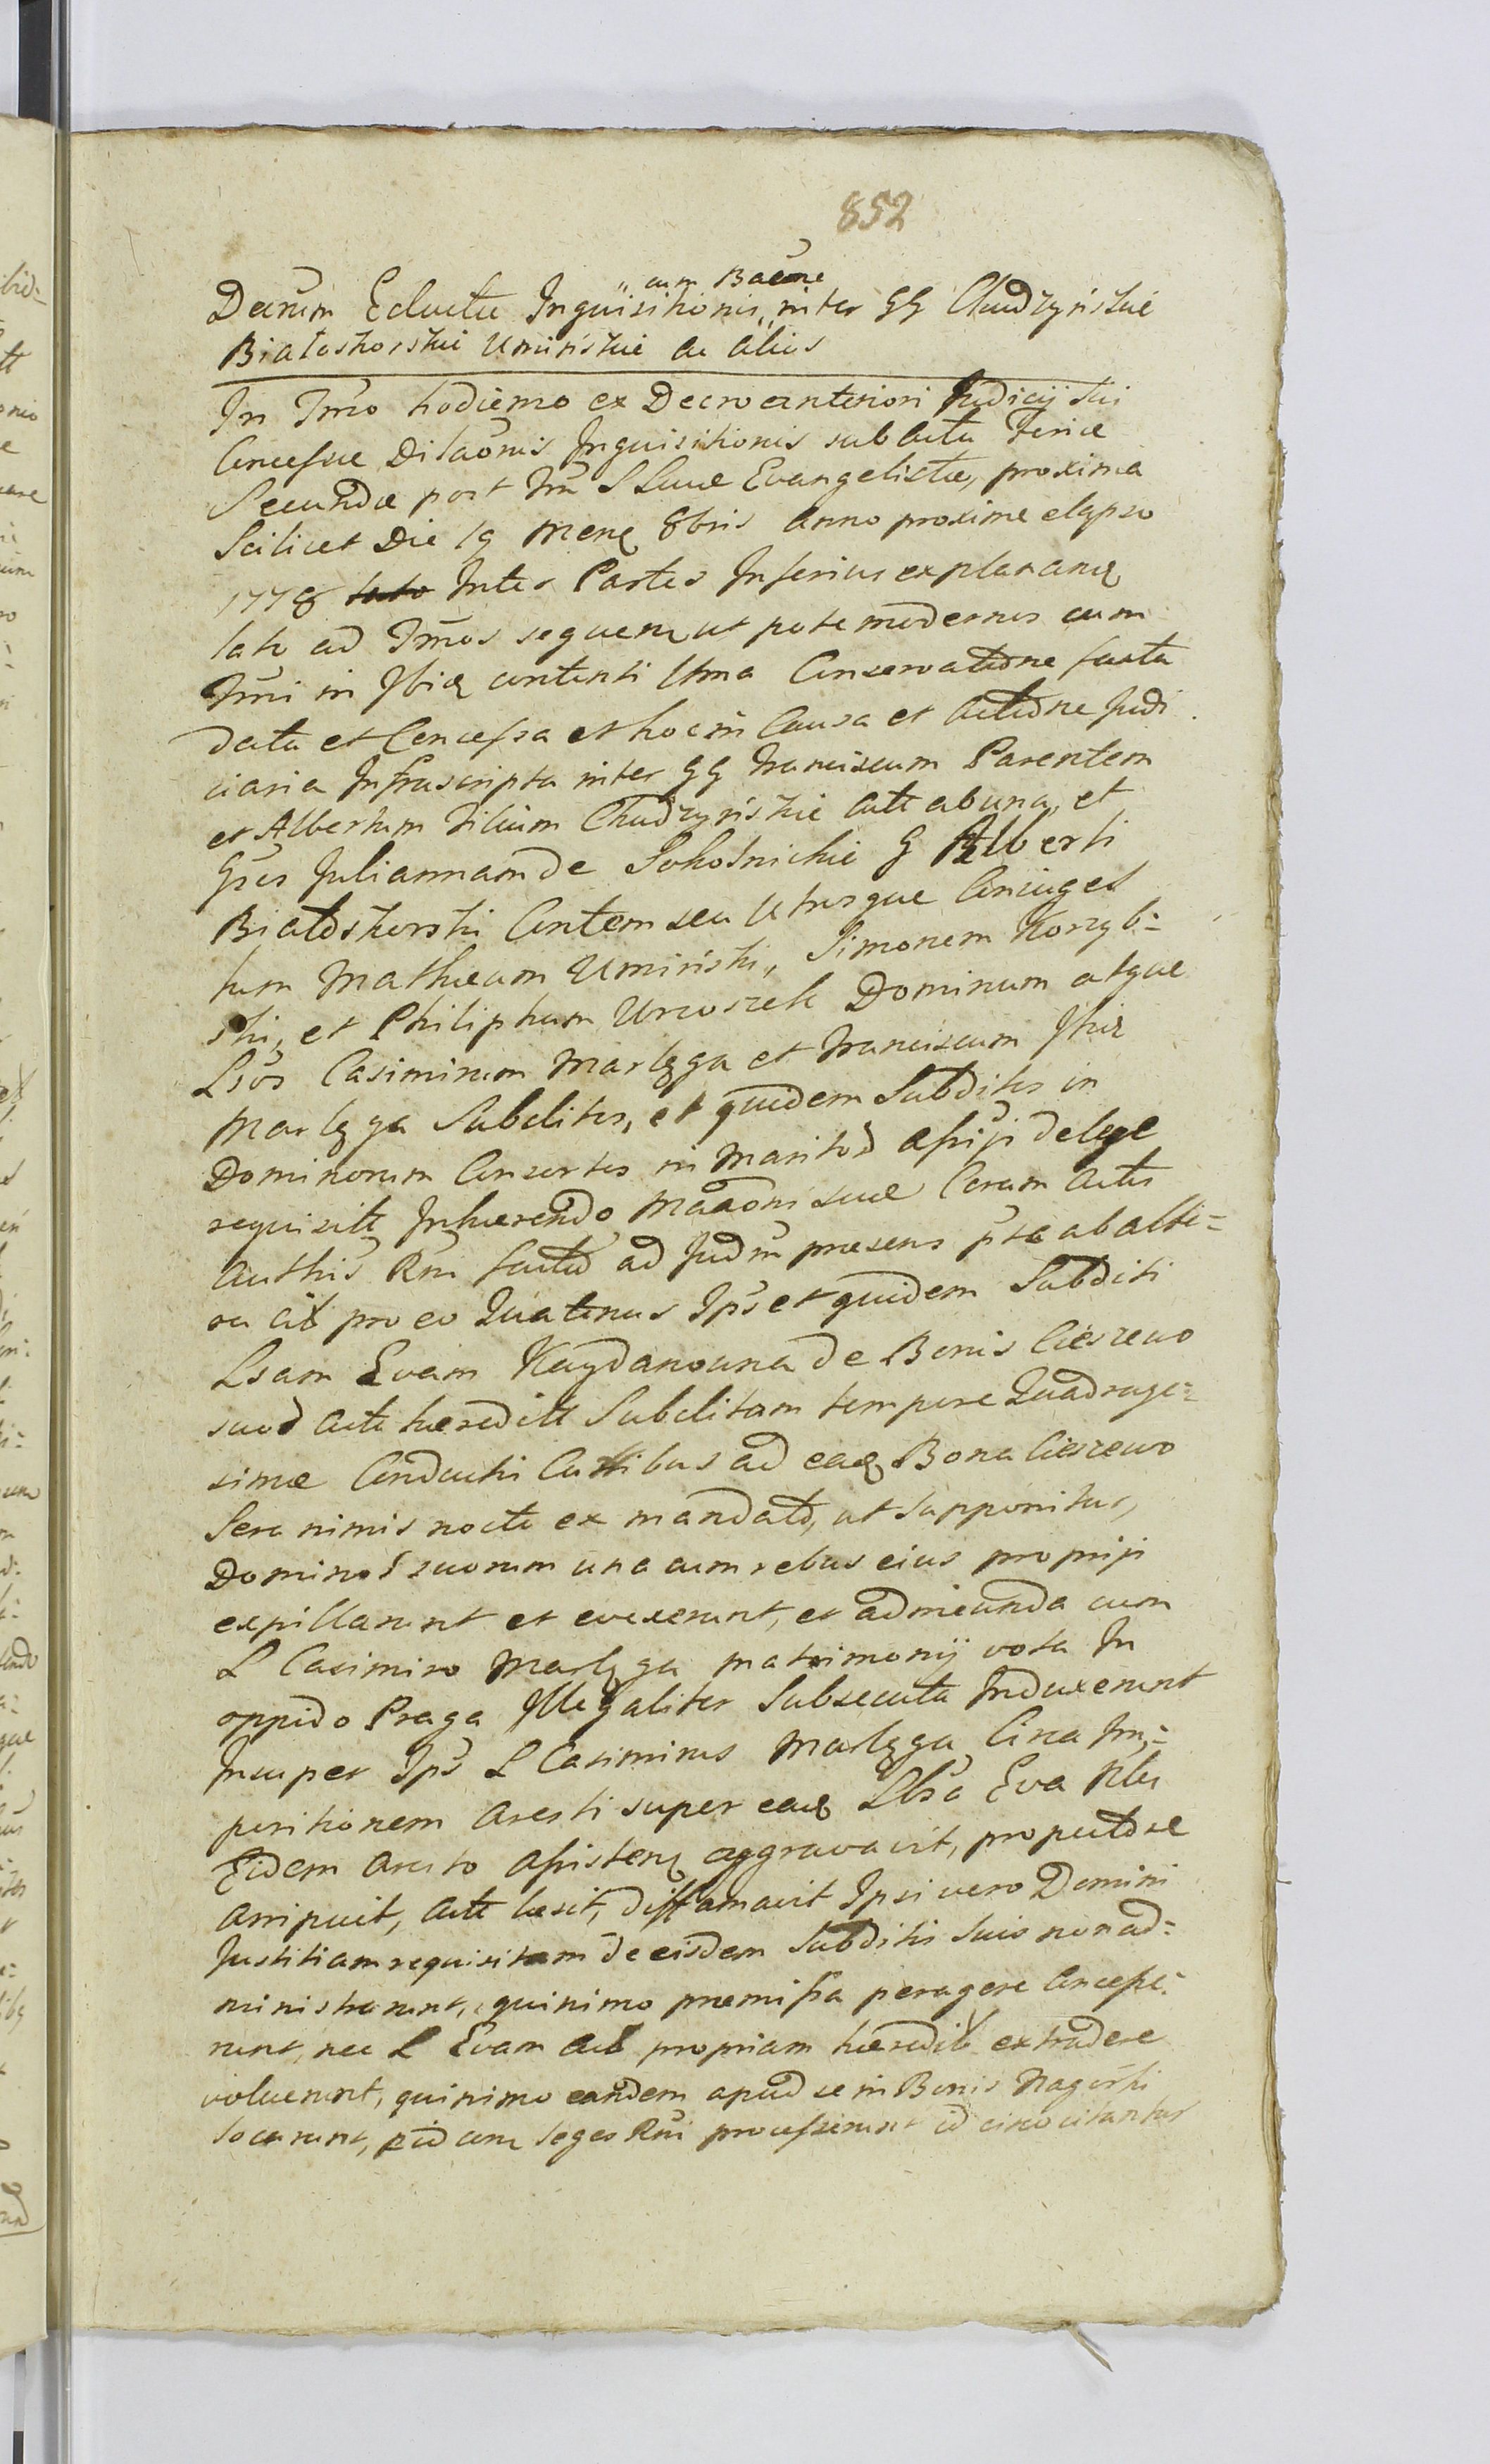 852
cum Baōne
Decrum Eductae Inquisitionis inter GG Chudzyńskie
Białoskorskie Uminskie ac alios
In Trmo hodierno ex Decro anteriori Judicij sui
Concessae Dilaōnis Inquisitionis sub actu Feriae
Secundae post Fm S Lucae Evangelistae, proxima
Scilicet Die 19 Menq 8bris Anno proxime elapso
1778 Inter Partes Inferius explananq
lato ad Trmos sequenq ut pote modernos cum
Trmi in Ibiq contenti Conservatione facta
data et Concessa et hoc in Causa et Actione Judi
ciaria Infrascripta inter GG Franciscum Parentem
et Albertum Filium Chudzyńskie Act ab una, et
Gsos Juliannam de Sokolnickie G Alberti
Białoskorski Contem seu Utrosque Coniuges
tum Mathaeum Uminski, Simonem Korzyb=
ski, et Philippum Wroszek Dominum atque
Lsos Casimirum Marlęga et Franciscum
Marlęga Subditos, et quidem Subditos in
Dominorum Consortes in Maritod assijj de lege
requisitt Inhaerendo Maāoni suae Coram Actis
Authis Rni factae ad Judm praesens pta ab alte=
ra cit pro eo Quatenus Ips et quidem Subditi
Lsam Evam Kaydanowna de Bonis Cieszewo
suod Acti haeredit Subditam tempore Quadrage=
simae Conducti Curribus ad eaq Bona Cieszewo
Sera nimis nocte ex mandato, ut supponitur,
Dominod suorum una cum rebus eius proprijs
expillarunt et evexerunt, et ad ineunda cum
L Casimiro Marlęga matrimonij vota In
oppido Praga Illegaliter Subsecuta Induxerunt
Insuper Ips L Casimirus Marlęga Circa Im=
positionem Aresti super eaq Lbsa Eva
Eidem Aresto Assistenq aggravavit, propectore
arripuit, Act laesit, diffamavit Ipsi vero Domini
Justitiam requisitam de eisdem Subditis suis non ad=
ministrarunt, quinimo praemissa peragere Concesse=
runt, nec L Evam Act propriam haeredib extradere
voluerunt, quinimo eandem apud se in Bonis Nagorki
locarunt, leges Rni processerunt id circo citantur